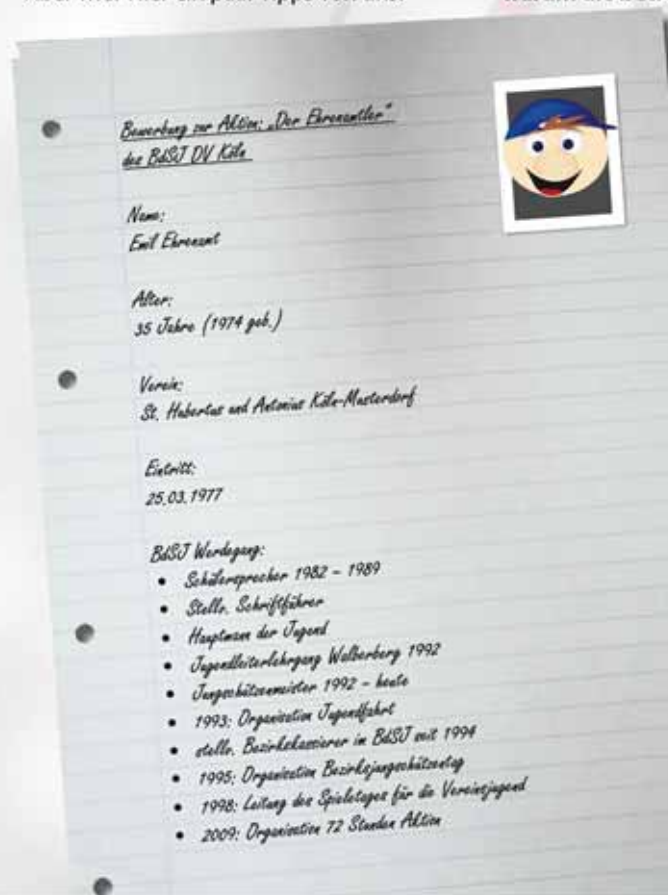 Bewerbung zur Aktion: „Der Ehrenamtler"
des BdSJ DV Köln
Name:
Emil Ehrenamt
Alter:
35 Jahre (1974 geb.)
Verein:
St. Hubertus und Antonius Köln-Musterdorf
Eintritt:
25.03.1977
BdSJ Werdegang:
• Schülersprecher 1982 – 1989
• Stellv. Schriftführer
• Hauptmann der Jugend
• Jugendleiterlehrgang Walberberg 1992
• Jungschützenmeister 1992 – heute
• 1993: Organisation Jugendfahrt
• stellv. Bezirkskassierer im BdSJ seit 1994
• 1995: Organisation Bezirksjungschützentag
• 1998: Leitung des Spieletages für die Vereinsjugend
• 2009: Organisation 72 Stunden Aktion